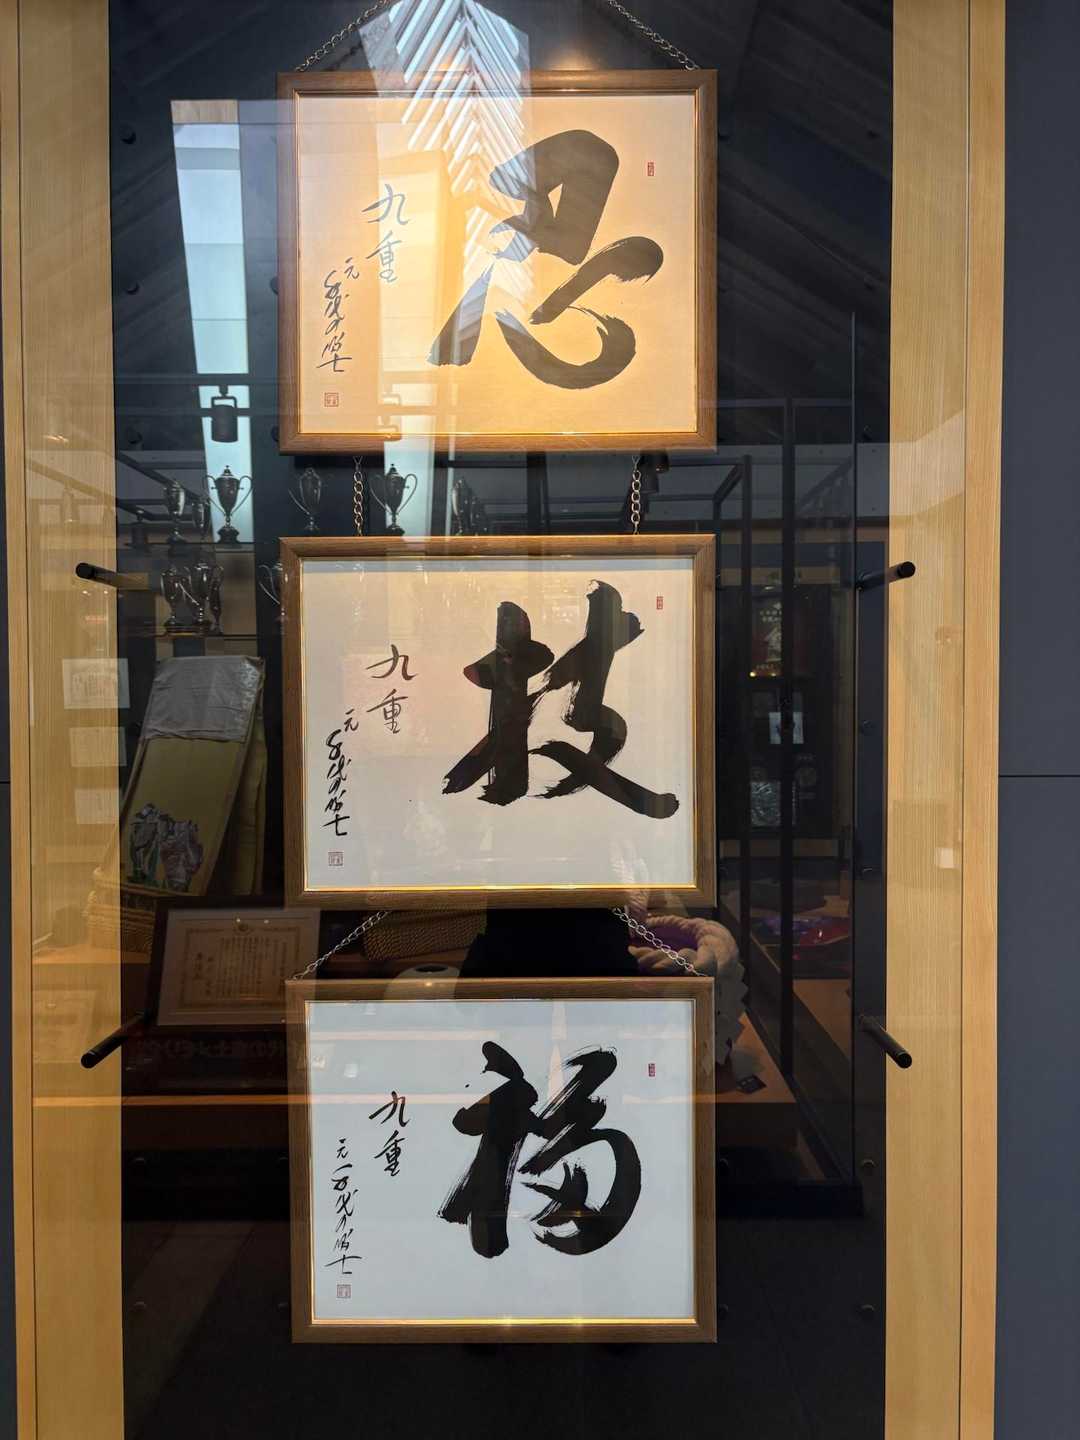 忍
九重
元千代の富士
技
九重
元千代の富士
福
九重
元千代の富士